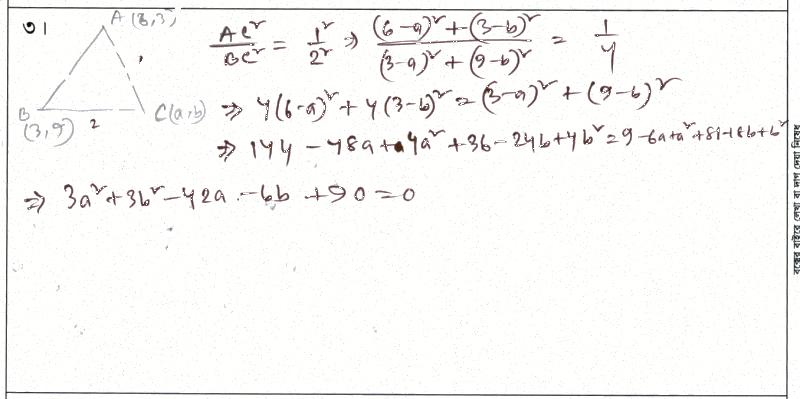 ৩। A (6,3) AC²/BC² = 1²/2² ⇒ ((6-a)²+(3-b)²)/((3-a)²+(9-b)²) = 1/4
1
B (3,9) 2 C(a,b) ⇒ 4(6-a)²+4(3-b)² = (3-a)²+(9-b)²
⇒ 144-48a+4a²+36-24b+4b²=9-6a+a²+81-18b+b²
⇒ 3a²+3b²-42a-6b+90=0
বক্সের বাইরে লেখা বা দাগ দেয়া নিষেধ